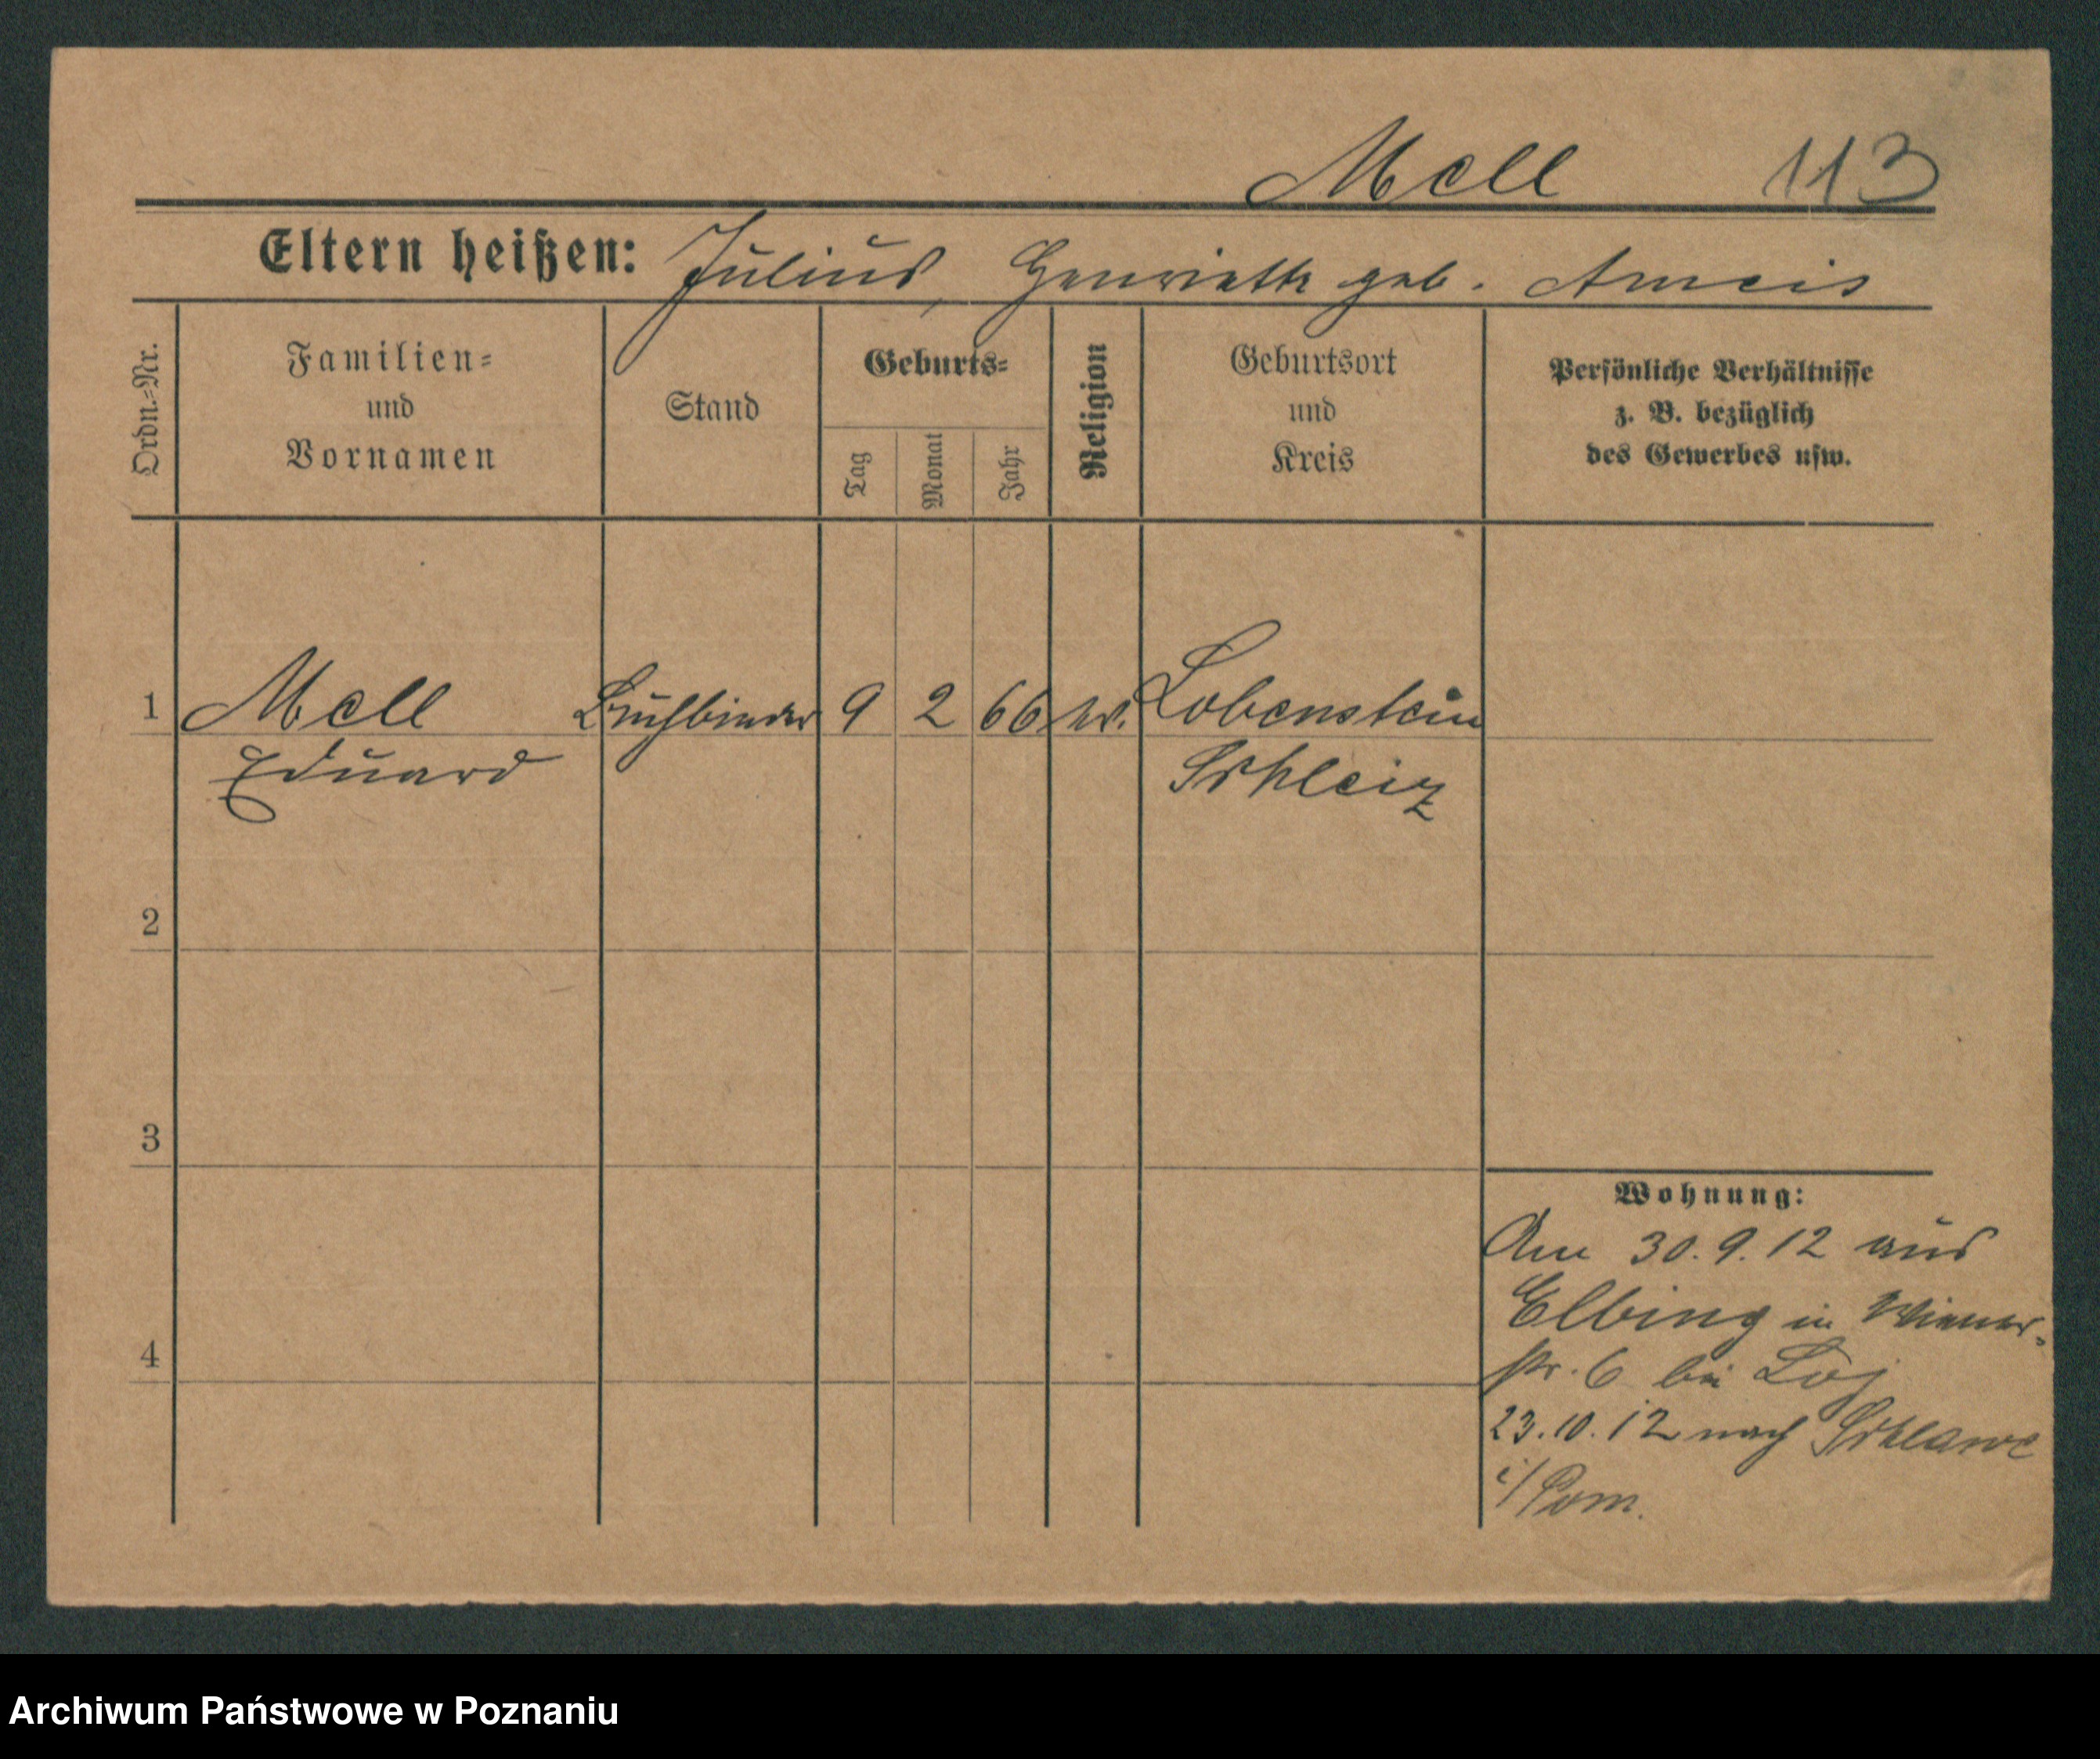 Mell 113
Eltern heißen: Julius, Henriette geb. Ameis
Ordn.-Nr.
Familien-
und
Vornamen
Stand
Geburts-
Tag
Monat
Jahr
Religion
Geburtsort
und
Kreis
Persönliche Verhältnisse
z. B. bezüglich
des Gewerbes usw.
1 Mell Buchbinder 9 2 66 ev. Lobenstein
Eduard Schleiz
2
3
4
Wohnung:
Am 30.9.12 aus
Elbing in Wiener-
str. 6 bei
23.10.12 nach Schlawe
i/Pom.
Archiwum Państwowe w Poznaniu